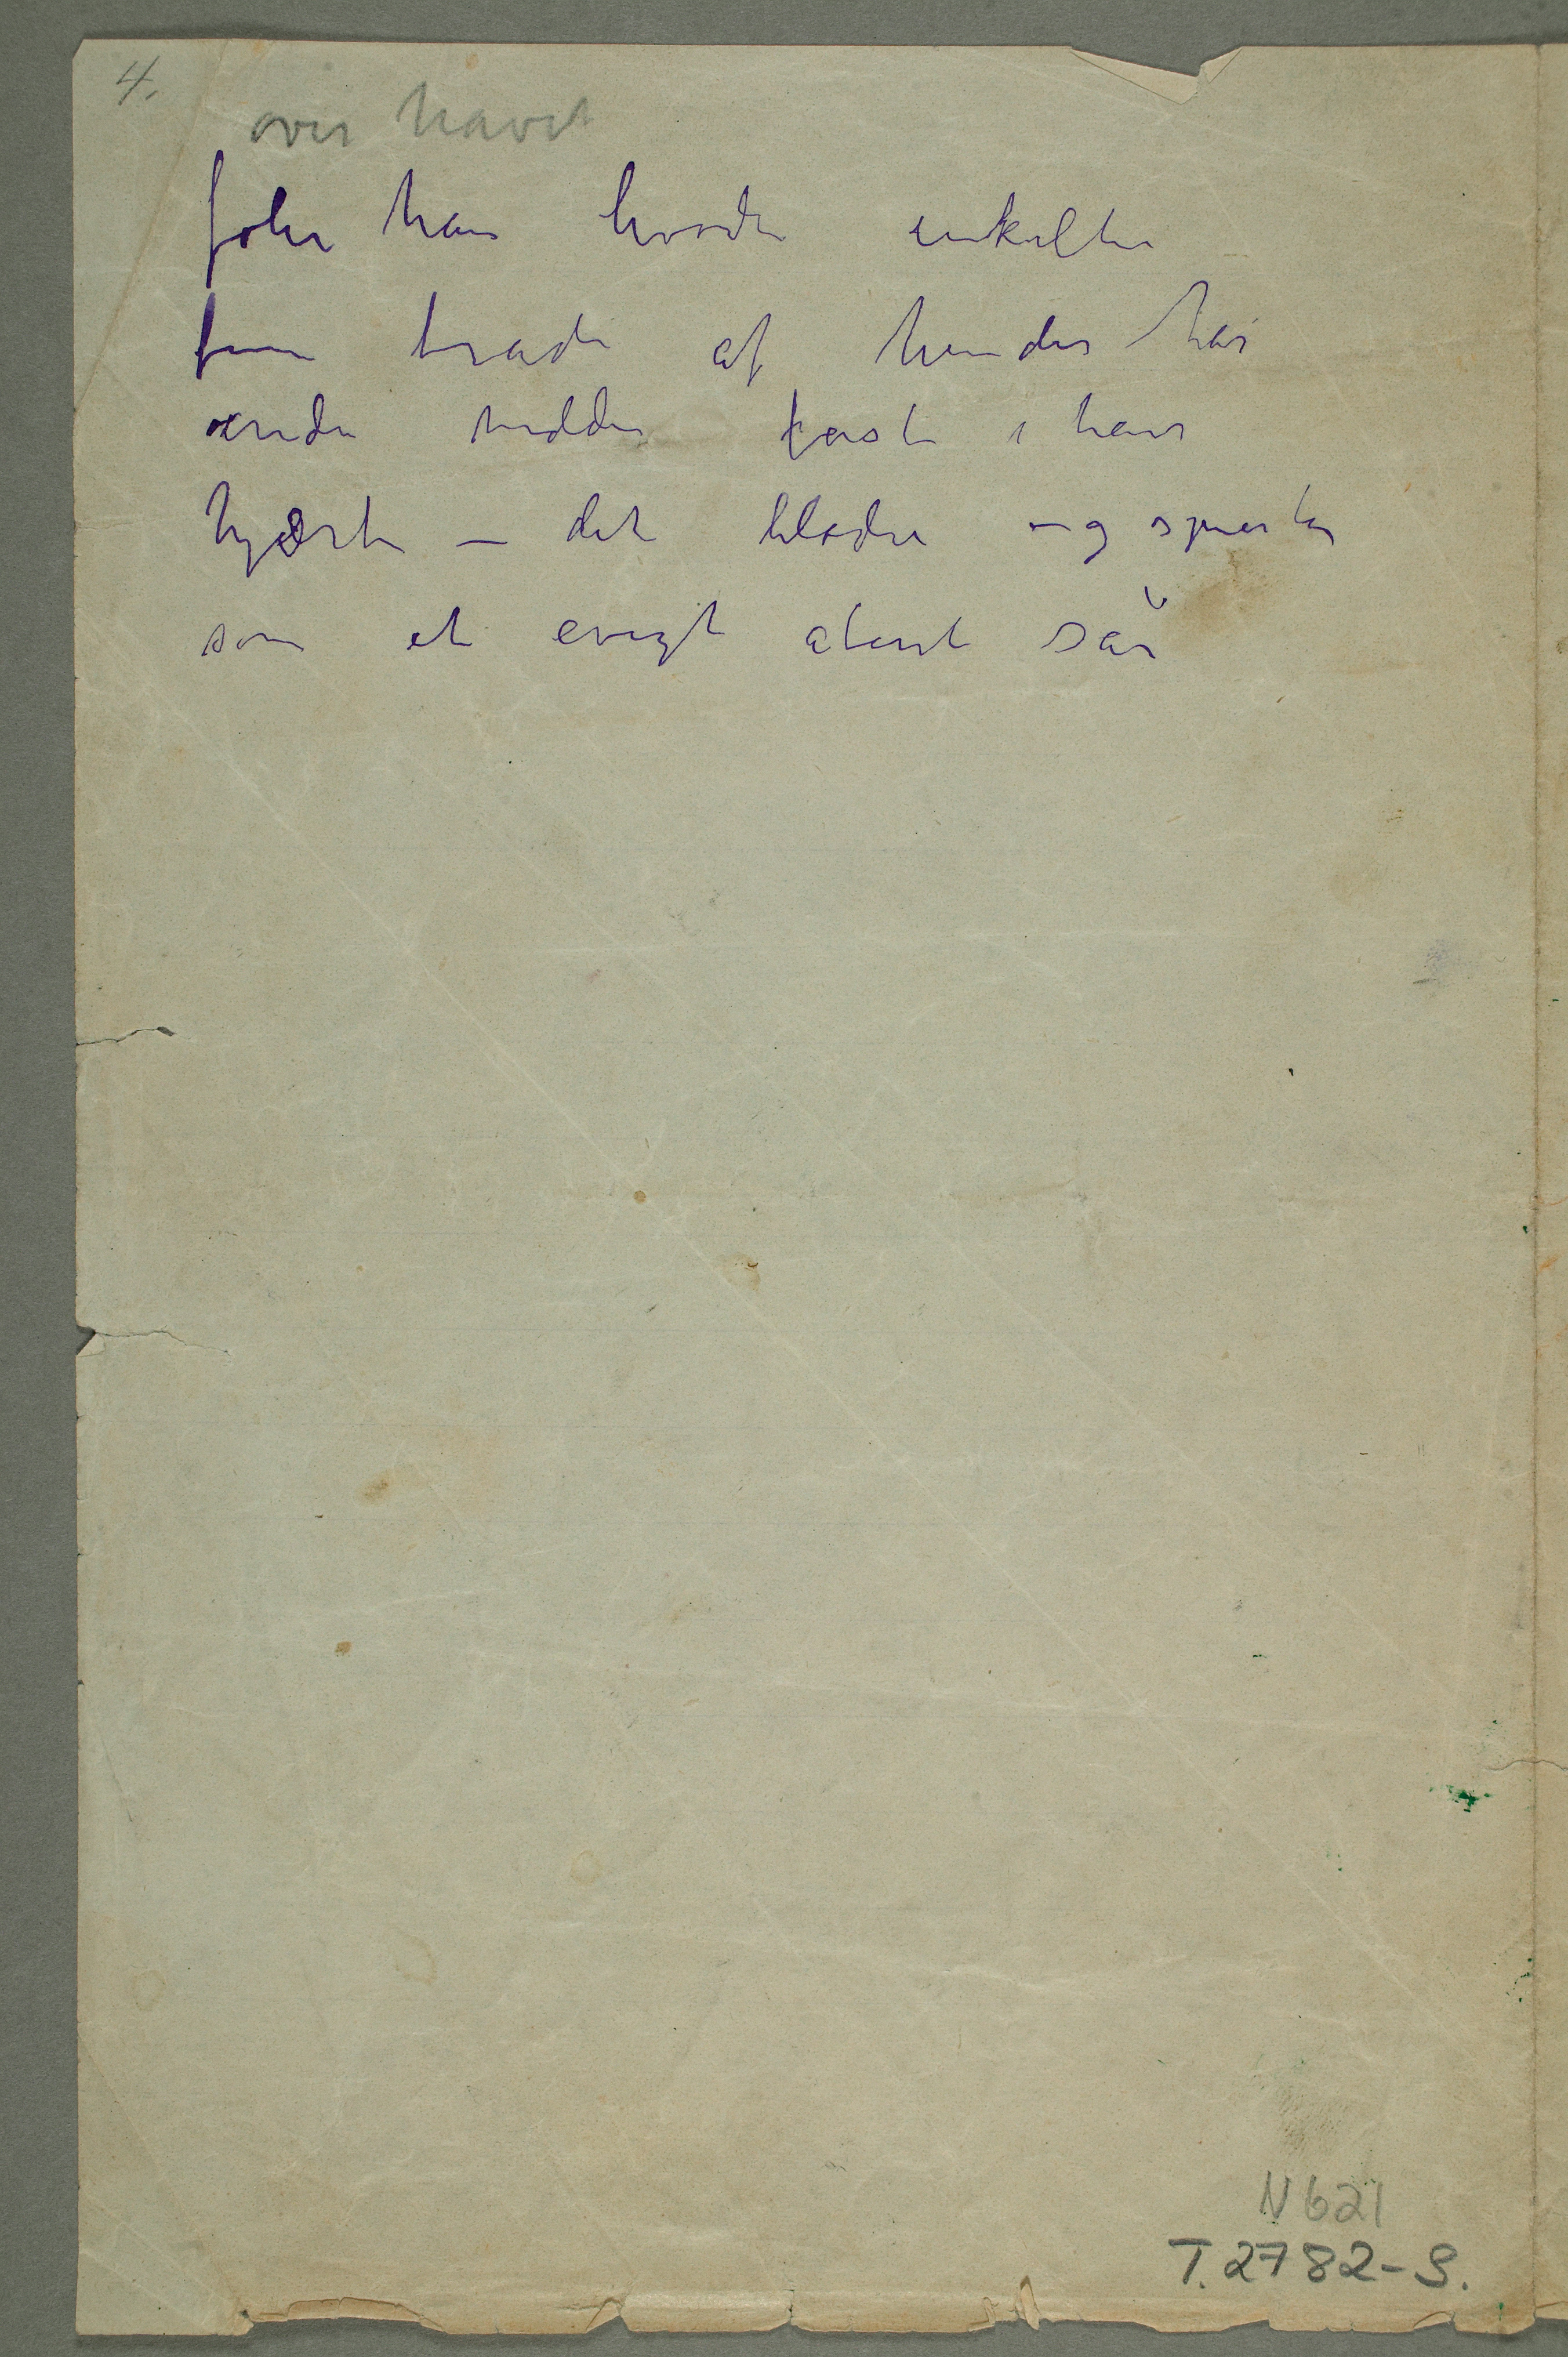 4.
over havet
føler han hvorda enkelte
fine tråde af hendes hår
ænda sidder fast i hans
hjærte – det bløder og smerter
som et evigt åbent sår
N 621
T. 2782-S.